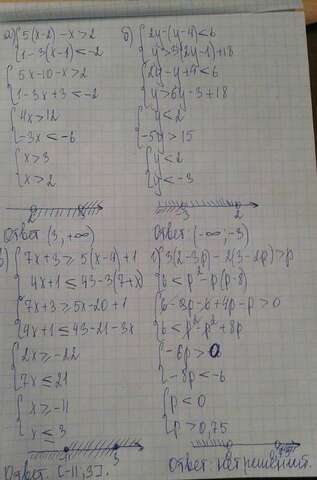 а) { 5(x-2)-x>2
1-3(x-1)<-2
{ 5x-10-x>2
1-3x+3<-2
{ 4x>12
-3x<-6
{ x>3
x>2
2 3
Ответ (3,+∞)
б) { 2y-(y-4)<6
y>3(2y-1)+18
{ 2y-y+4<6
y>6y-3+18
{ y<2
-5y>15
{ y<2
y<-3
-3 2
Ответ: (-∞;-3)
в) { 7x+3≥5(x-4)+1
4x+1≤43-3(7+x)
{ 7x+3≥5x-20+1
4x+1≤43-21-3x
{ 2x≥-22
7x≤21
{ x≥-11
x≤3
3
Ответ. [-11,3].
{ 3(2-3p)-2(3-2p)>p
6<p²-p(p-8)
{ 6-9p-6+4p-p>0
6<p²-p²+8p
{ -6p>0
-8p<-6
{ p<0
p>0,75
Ответ: нет решений.